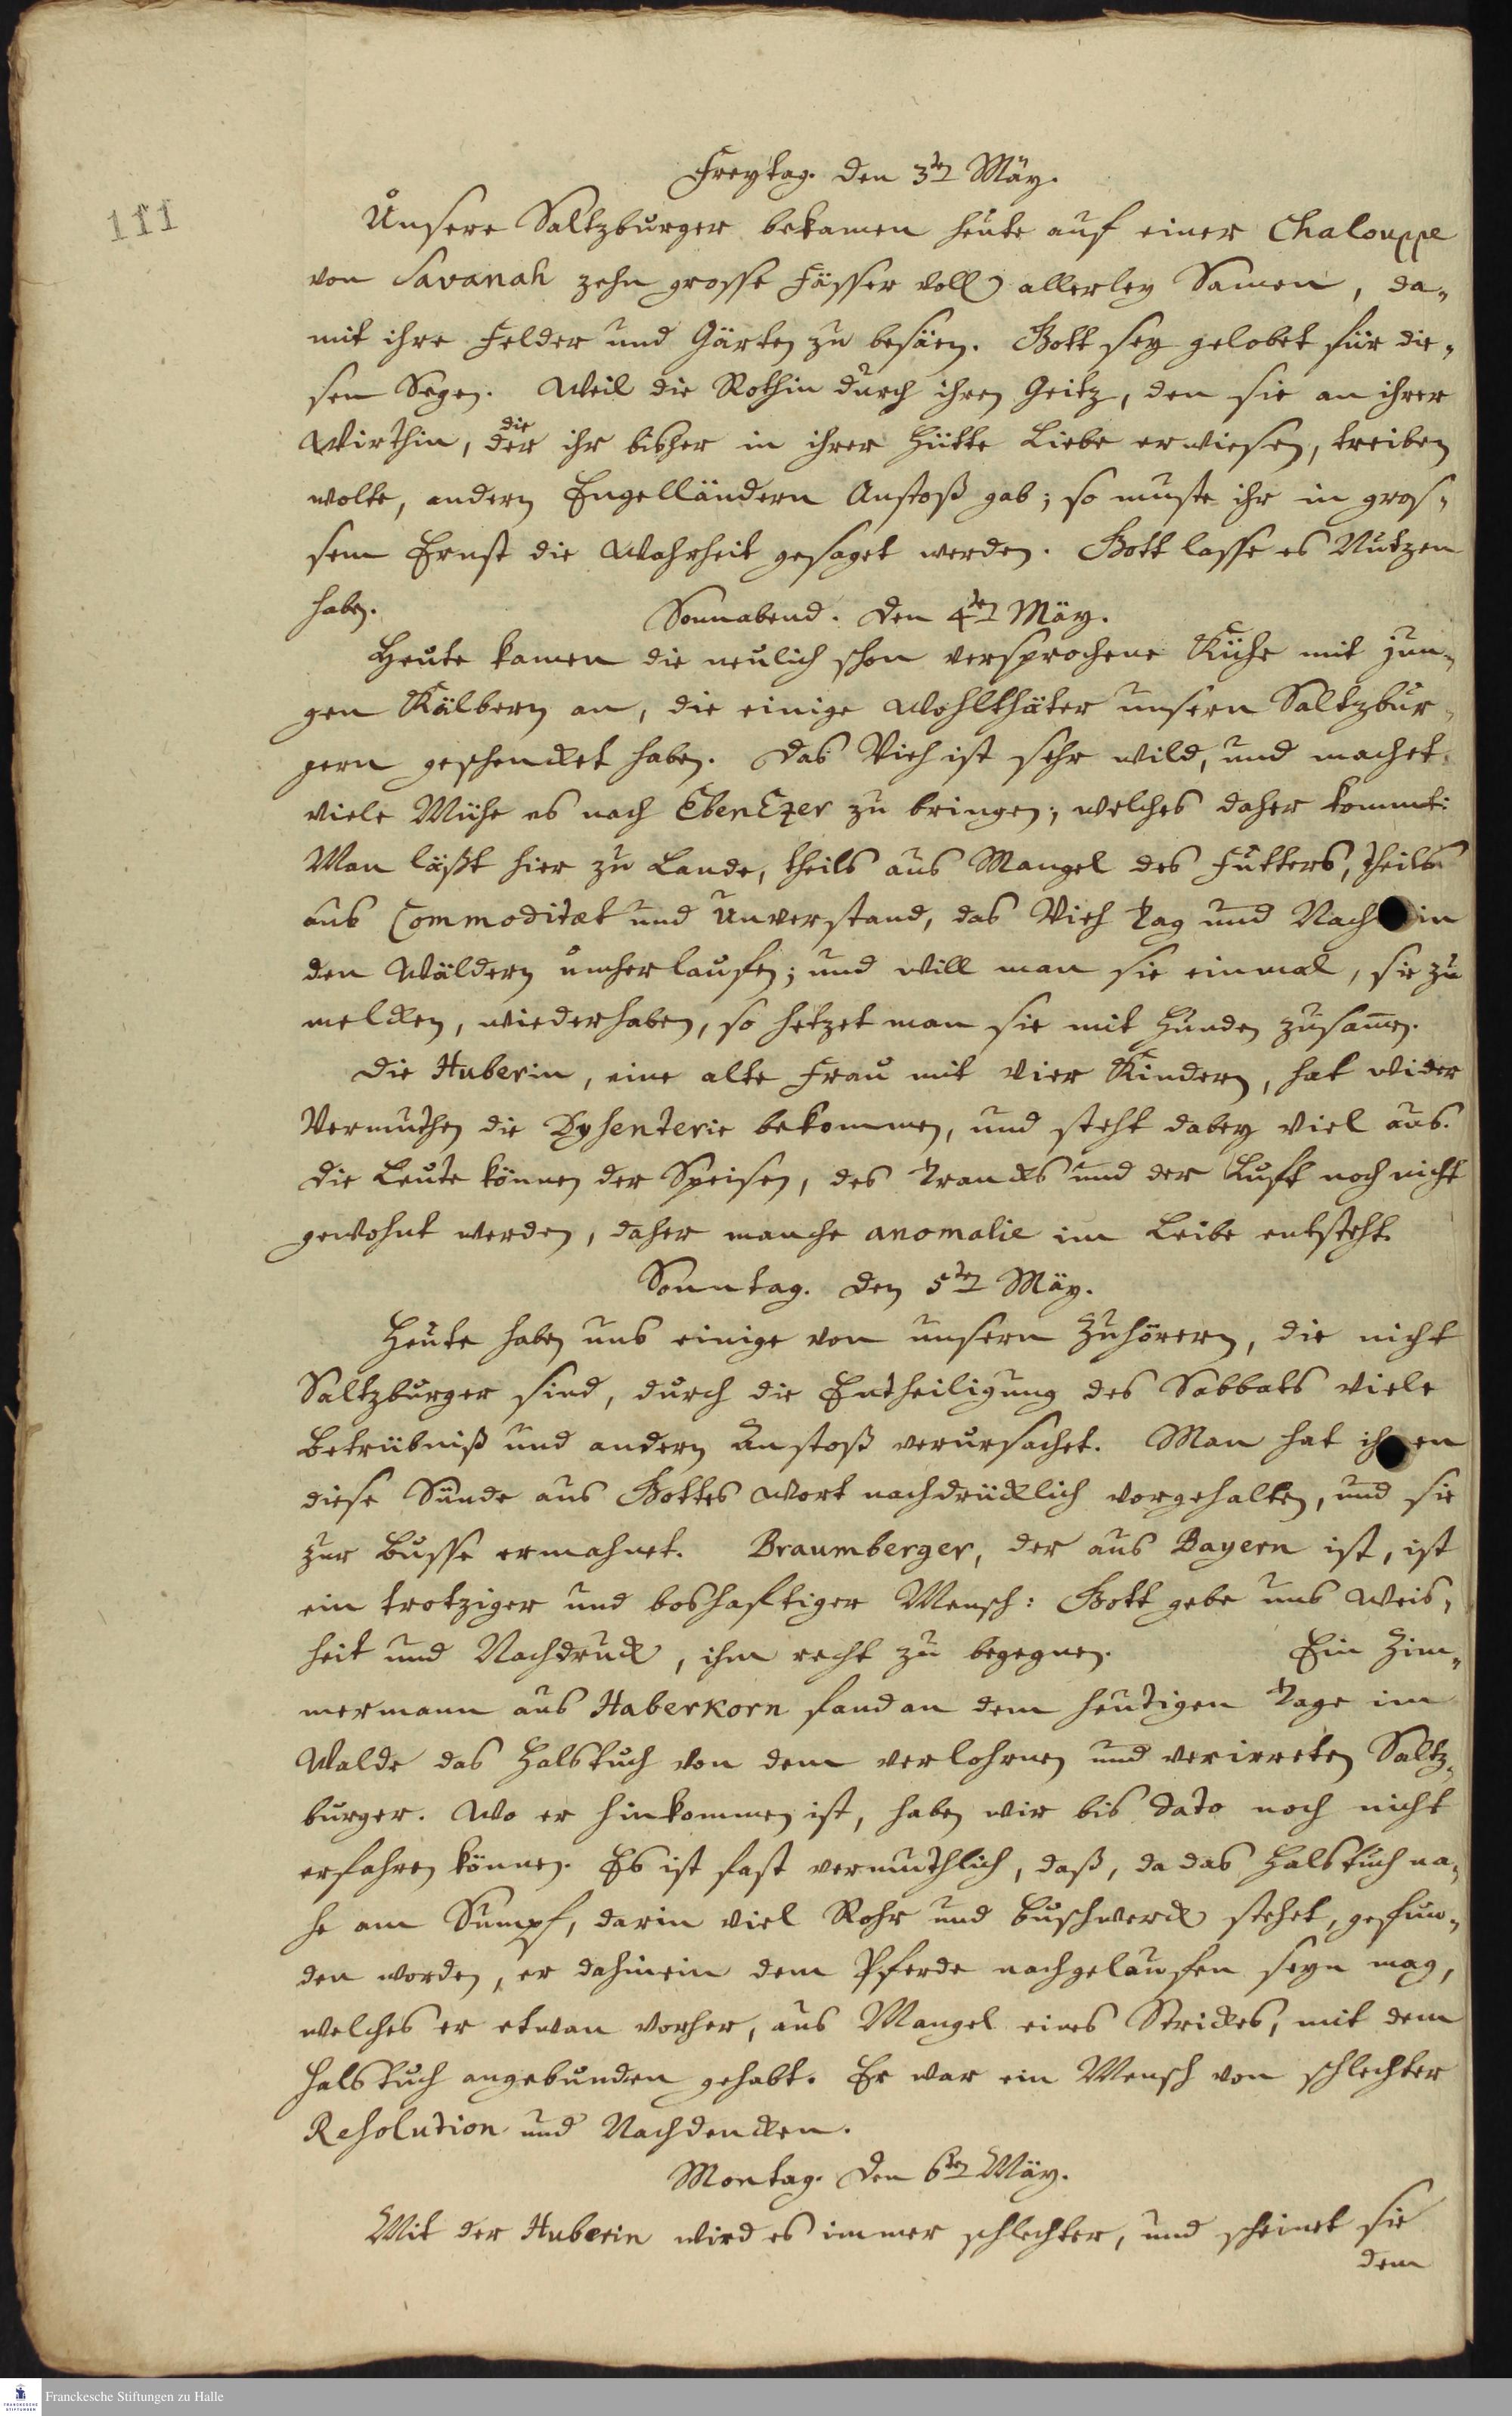 111
Freytag. den 3ten Mäy.
Unsere Saltzburger bekamen heute auf einer Chalouppe
von Savanah zehn grosse Fässer voll allerley Samen, da-
mit ihre Felder und Gärten zu besäen. Gott sey gelobet für die-
sen Segen. Weil die Rothin durch ihren Geitz, den sie an ihrer
die
Wirthin, der ihr bisher in ihrer Hütte Liebe erwiesen, treiben
wolte, andern Engelländern Anstoß gab; so muste ihr in gros-
sem Ernst die Wahrheit gesaget werden. Gott lasse es Nutzen
haben.
Sonnabend. den 4ten Mäy.
Heute kamen die neulich schon versprochene Kühe mit jun-
gen Kälbern an, die einige Wohlthäter unsern Saltzbur-
gern geschencket haben. Das Vieh ist sehr wild, und machet
viele Mühe es nach EbenEzer zu bringen; welches daher kommt:
Man läßt hier zu Lande, theils aus Mangel des Futters, theils
aus Commoditæt und Unverstand, das Vieh Tag und Nach in
den Wäldern umherlaufen; und will man sie einmal, sie zu
melcken, wiederhaben, so hetzet man sie mit Hunden zusamen.
Die Huberin, eine alte Frau mit vier Kindern, hat wider
Vermuthen die Dysenterie bekommen, und steht dabey viel aus.
Die Leute können der Speisen, des Trancks und der Luft noch nicht
gewohnt werden, daher manche anomalie im Leibe entsteht.
Sonntag. den 5ten Mäy.
Heute haben uns einige von unsern Zuhörern, die nicht
Saltzburger sind, durch die Entheiligung des Sabbats viele
Betrübniß und andern Anstoß verursachet. Man hat ihnen
diese Sünde aus Gottes Wort nachdrücklich vorgehalten, und sie
zur Busse ermahnet. Braumberger, der aus Bayern ist, ist
ein trotziger und boshaftiger Mensch: Gott gebe uns Weis-
heit und Nachdruck, ihm recht zu begegnen. Ein Zim-
mermann aus Haberkorn fand an dem heutigen Tage im
Walde das Halstuch von dem verlohrnen und verirreten Saltz-
burger. Wo er hinkommen ist, haben wir bis dato noch nicht
erfahren können. Es ist fast vermuthlich, daß, da das Halstuch na-
he am Sumpf, darin viel Rohr und Buschwerck stehet, gefun-
den worden, er dahinein dem Pferde nachgelaufen seyn mag,
welches er etwan vorher, aus Mangel eines Strickes, mit dem
Halstuch angebunden gehabt. Er war ein Mensch von schlechter
Resolution und Nachdencken.
Montag. den 6ten Mäy.
Mit der Huberin wird es immer schlechter, und scheinet sie
dem
Franckesche Stiftungen zu Halle